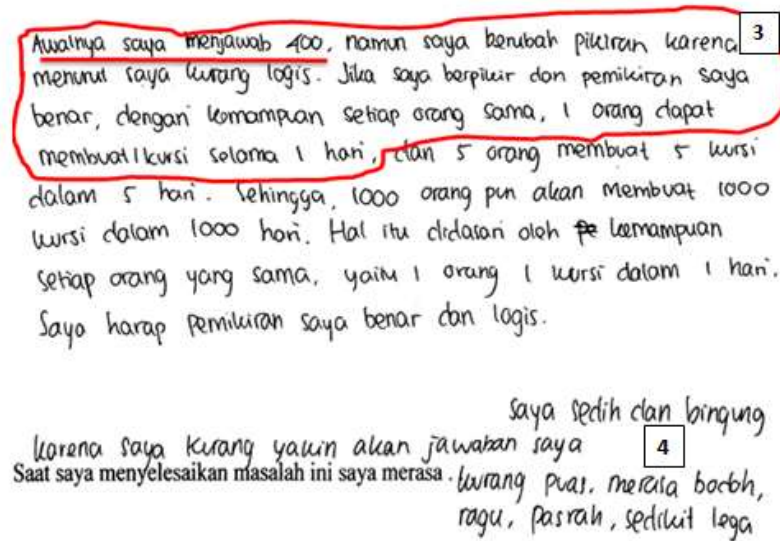 Awalnya saya menjawab 400, namun saya berubah pikiran karena
3
menurut saya kurang logis. Jika saya berpikir dan pemikiran saya
benar, dengan kemampuan setiap orang sama, 1 orang dapat
membuat 1 kursi selama 1 hari, dan 5 orang membuat 5 kursi
dalam 5 hari. Sehingga, 1000 orang pun akan membuat 1000
kursi dalam 1000 hari. Hal itu didasari oleh kemampuan
setiap orang yang sama, yaitu 1 orang 1 kursi dalam 1 hari.
Saya harap pemikiran saya benar dan logis.
saya sedih dan bingung
karena saya kurang yakin akan jawaban saya
4
Saat saya menyelesaikan masalah ini saya merasa . kurang puas, merasa bodoh,
ragu, pasrah, sedikit lega